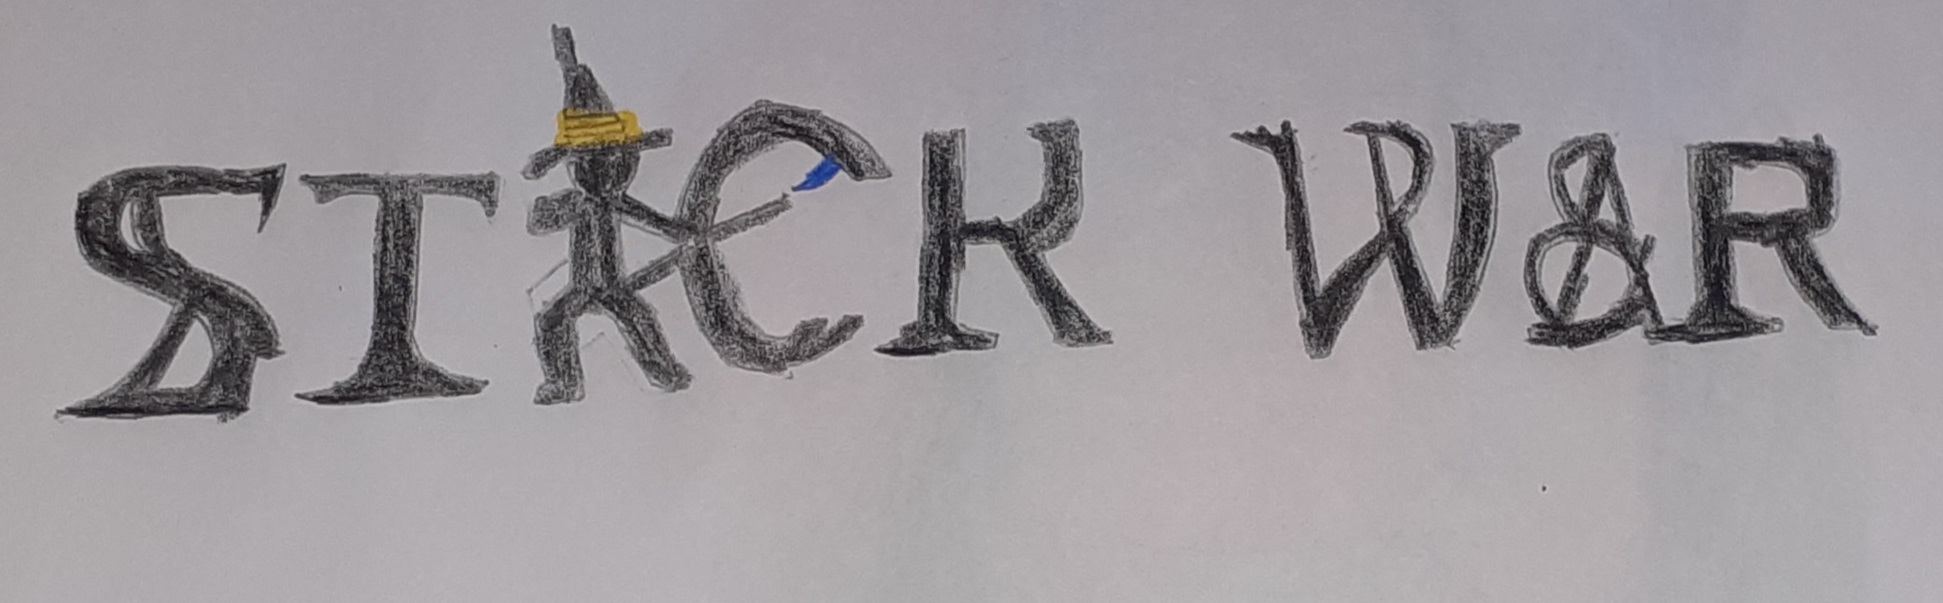 STICK WAR